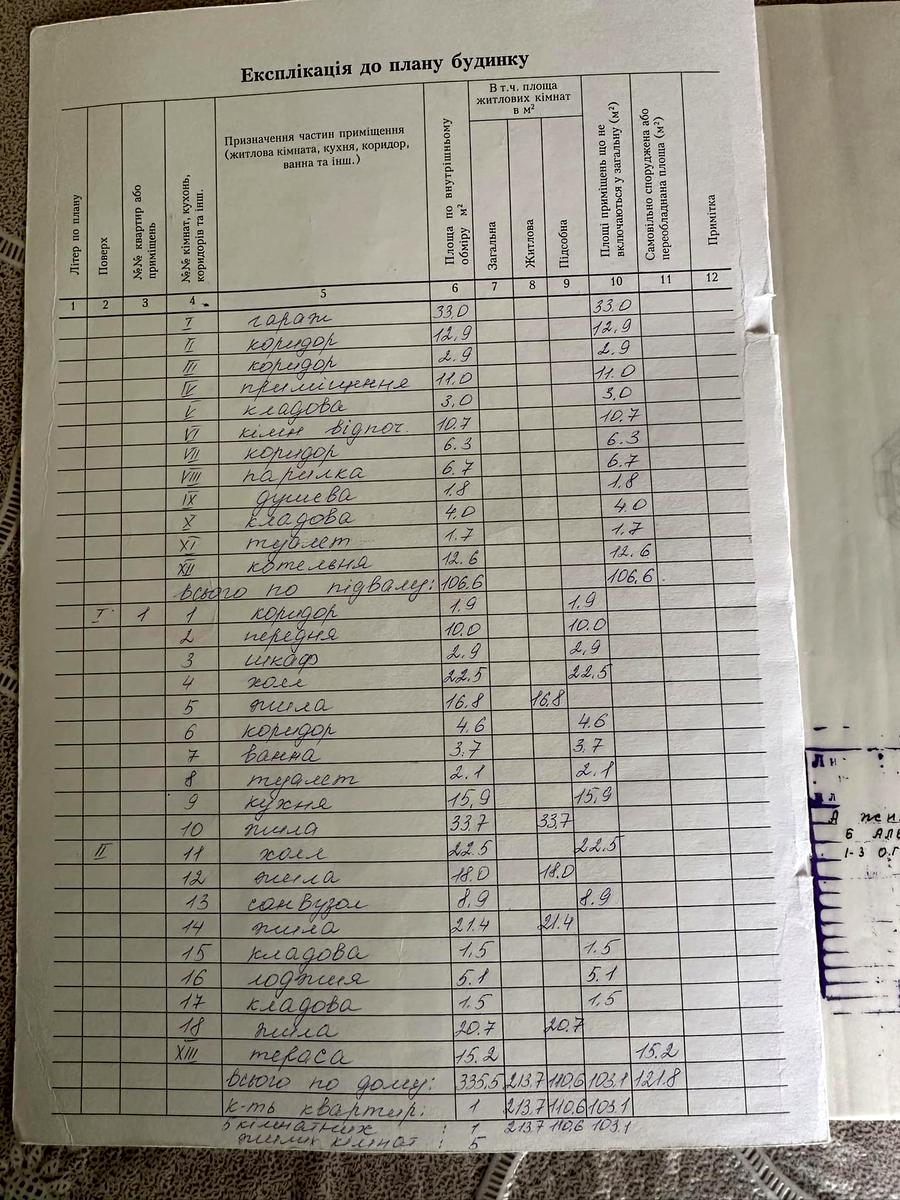 Експлікація до плану будинку
Літер по плану
Поверх
№№ квартир або приміщень
№№ кімнат, кухонь, коридорів та інш.
Призначення частин приміщення (житлова кімната, кухня, коридор, ванна та інш.)
Площа по внутрішньому обміру м²
В т.ч. площа житлових кімнат в м²
Загальна
Житлова
Підсобна
Площі приміщень що не включаються у загальну (м²)
Самовільно споруджена або переобладнана площа (м²)
Примітка
1 2 3 4 5 6 7 8 9 10 11 12
I гараж 33,0 33.0
II коридор 12,9 12,9
III коридор 2.9 2.9
IV приміщення 11.0 11.0
V кладова 3,0 3,0
VI кімн відпоч. 10.7 10.7
VII коридор 6.3 6.3
VIII парилка 6.7 6.7
IX душева 1.8 1.8
X кладова 4.0 4.0
XI туалет 1.7 1.7
XII котельня 12.6 12.6
всього по підвалу: 106.6 106.6
I 1 1 коридор 1.9 1.9
2 передня 10.0 10.0
3 шкаф 2.9 2,9
4 холл 22.5 22,5
5 жила 16.8 16.8
6 коридор 4.6 4.6
7 ванна 3.7 3.7
8 туалет 2.1 2.1
9 кухня 15,9 15,9
10 жила 33.7 33,7
II 11 холл 22.5 22.5
12 жила 18.0 18.0
13 санвузол 8.9 8.9
14 жила 21.4 21.4
15 кладова 1.5 1.5
16 лоджия 5.1 5.1
17 кладова 1.5 1,5
18 жила 20.7 20.7
XIII тераса 15.2 15.2
всього по дому: 335,5 213.7 110.6 103.1 121.8
к-ть квартир: 1 213.7 110.6 103.1
5 кімнатних : 1 213.7 110.6 103.1
жилих кімнат : 5